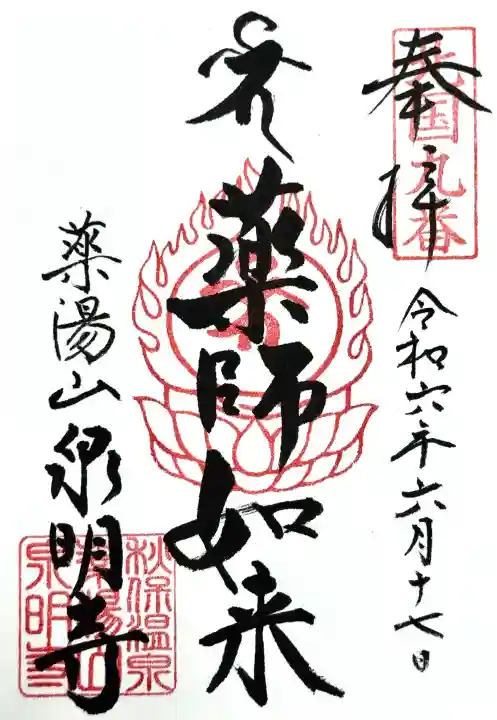 奉拝
九番
令和六年六月十七日
薬師如来
薬湯山
泉明寺
秋保温泉
薬湯山
泉明寺